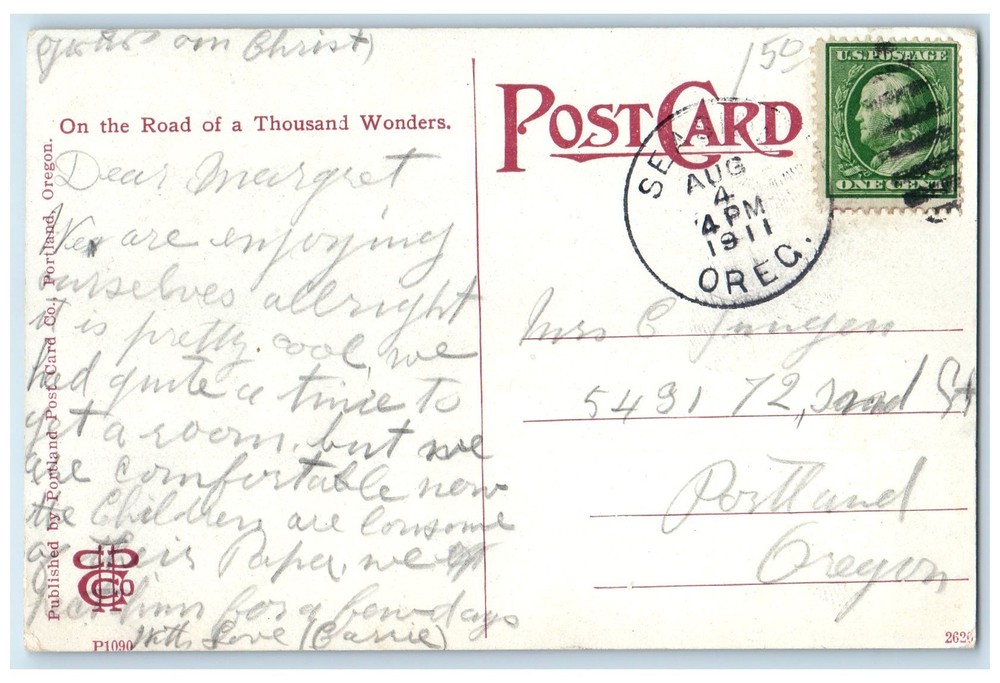 on Christ)
150
On the Road of a Thousand Wonders.
POST CARD
U.S. POSTAGE
ONE CENT
SEA
AUG
4
4 PM
1911
OREG.
Dear Margret
We are enjoying
ourselves allright
it is pretty cool, we
had quite a time to
got a room, but we
are comfortable now
the Children are lonsome
Papa, we
him for a few days
With Love (Carrie)
Mrs C Jungen
5431 72, St
Portland
Oregon
Published by Portland Post Card Co., Portland, Oregon.
P1090
2626